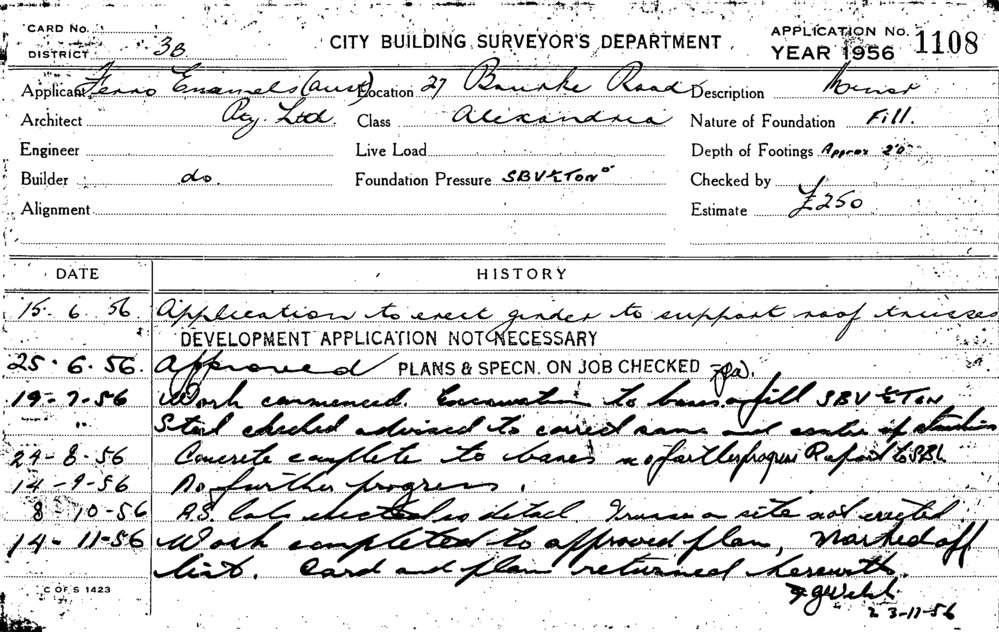 CARD No.
DISTRICT 3B
CITY BUILDING SURVEYOR'S DEPARTMENT
APPLICATION No. 1108
YEAR 1956
Applicant Ferro Enamels (Aust) Location 27 Bourke Road Description Minor
Architect Pty Ltd Class Alexandria Nature of Foundation Fill.
Engineer Live Load Depth of Footings Approx 2'0"
Builder do. Foundation Pressure SBV ½ TON Checked by
Alignment Estimate £250
DATE HISTORY
15. 6. 56 Application to erect girder to support roof trusses
DEVELOPMENT APPLICATION NOT NECESSARY
25. 6. 56. Approved PLANS & SPECN. ON JOB CHECKED
19-7-56 Work commenced. Excavation to bases fill SBV ½ TON
" Steel checked advised to correct same and
24-8-56 Concrete complete to bases no further progress Report to SBI.
14-9-56 No further progress.
8 10-56 detail Trusses on site not erected
14-11-56 Work completed to approved plan, Marked off
list. Card and plan returned herewith.
C OF S 1423
23-11-56